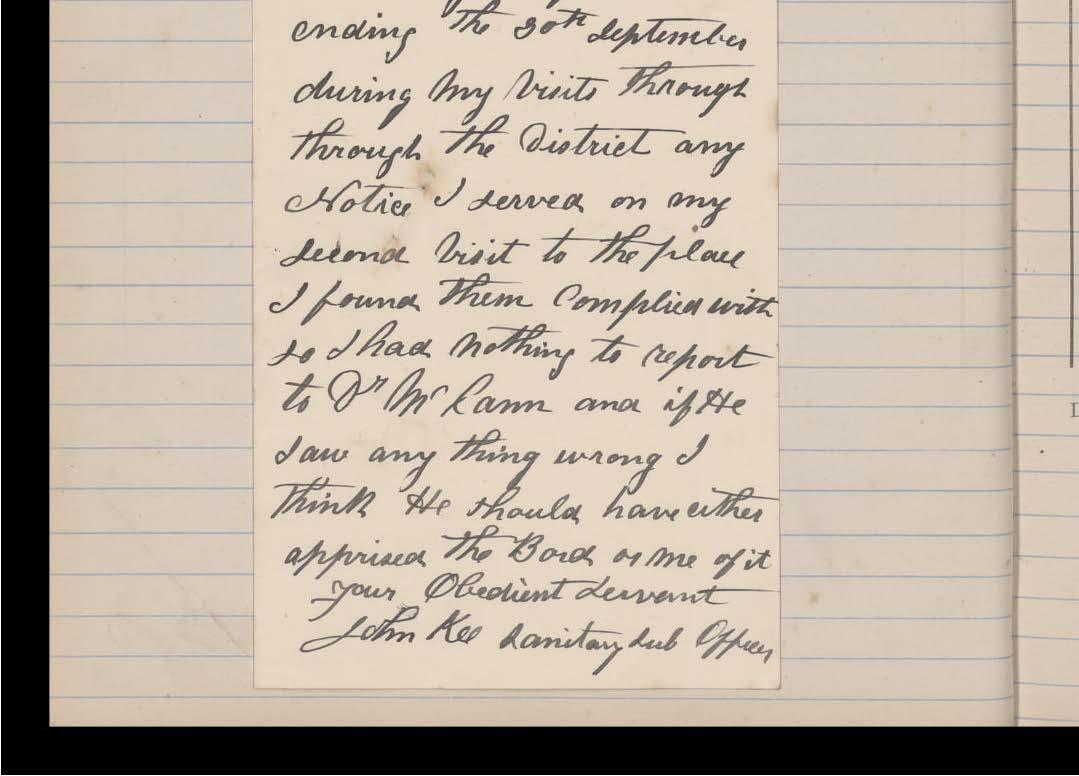 ending the 30th September
during my visits through
through the District any
Notice I served on my
second visit to the place
I found them Complied with
so I had nothing to report
to Dr McCann and if He
saw any thing wrong I
think He should have either
apprised the Bord or me of it
your Obedient Servant
John Kee Sanitary Sub Officer